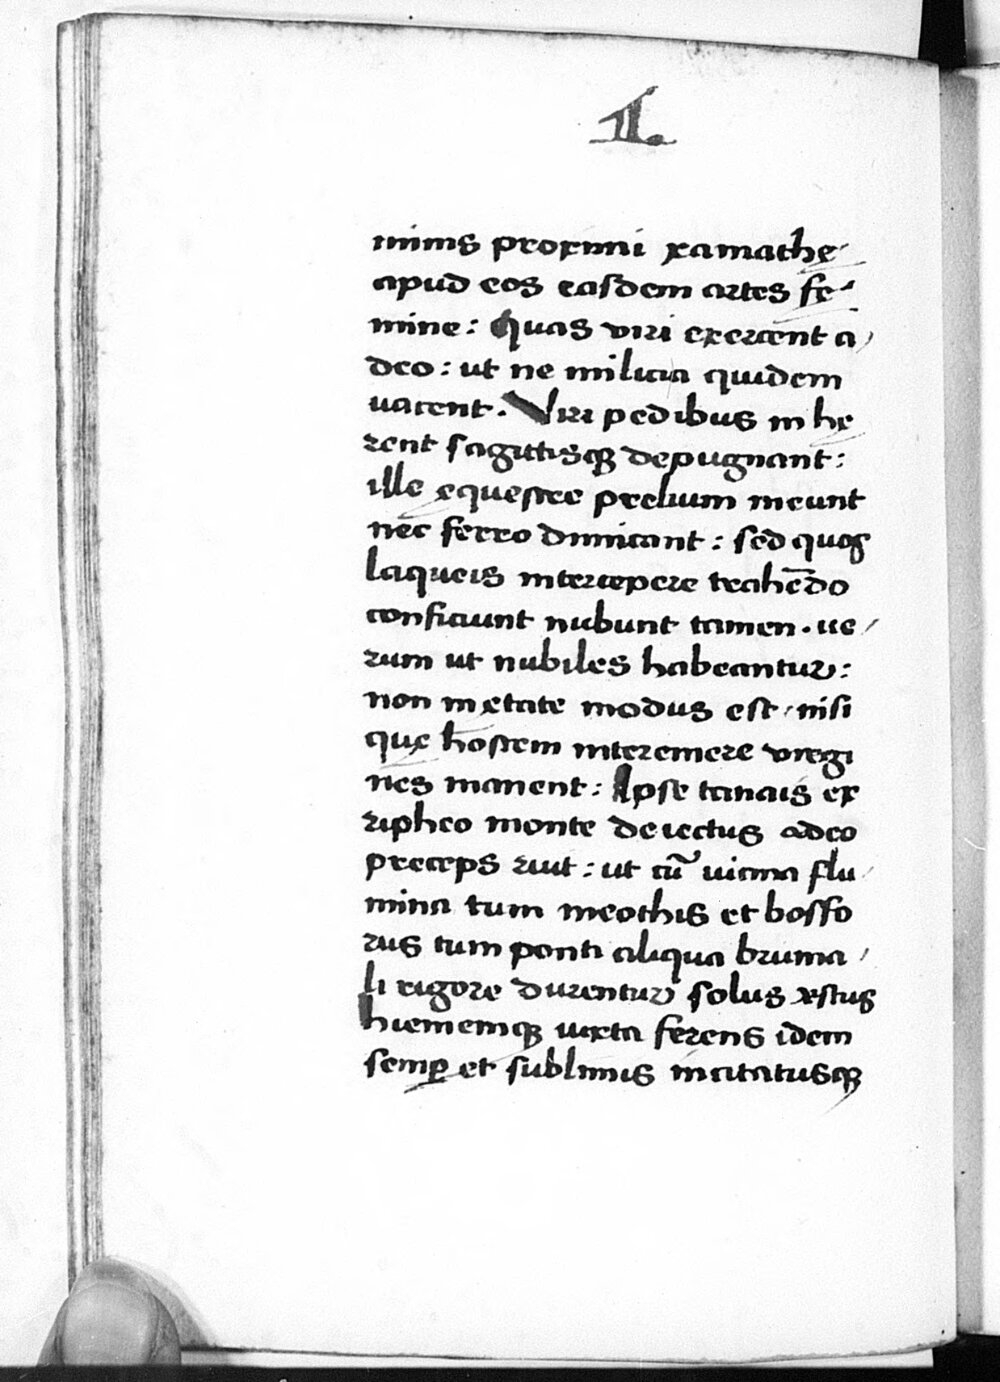 .II.
nimis proximi xamathę
apud eos easdem artes fe
mine: quas viri exercent a
deo: ut ne milicia quidem
uacent. Viri pedibus in hę
rent sagittisqꝫ depugnant:
ille ęquestre prelium ineunt
nec ferro dimicant: sed quos
laqueis intercepere trahẽdo
conficiunt nubunt tamen. ue
rum ut nubiles habeantur:
non in ętate modus est, nisi
quę hostem interemere virgi
nes manent: Ipse tanais ex
ripheo monte deiectus adeo
preceps ruit: ut cũ uicina flu
mina tum meothis et bosfo
rus tum ponti aliqua bruma
li rigore durentur solus ęstus
hiememqꝫ iuxta ferens idem
semꝑ et sublimis incitatusqꝫ